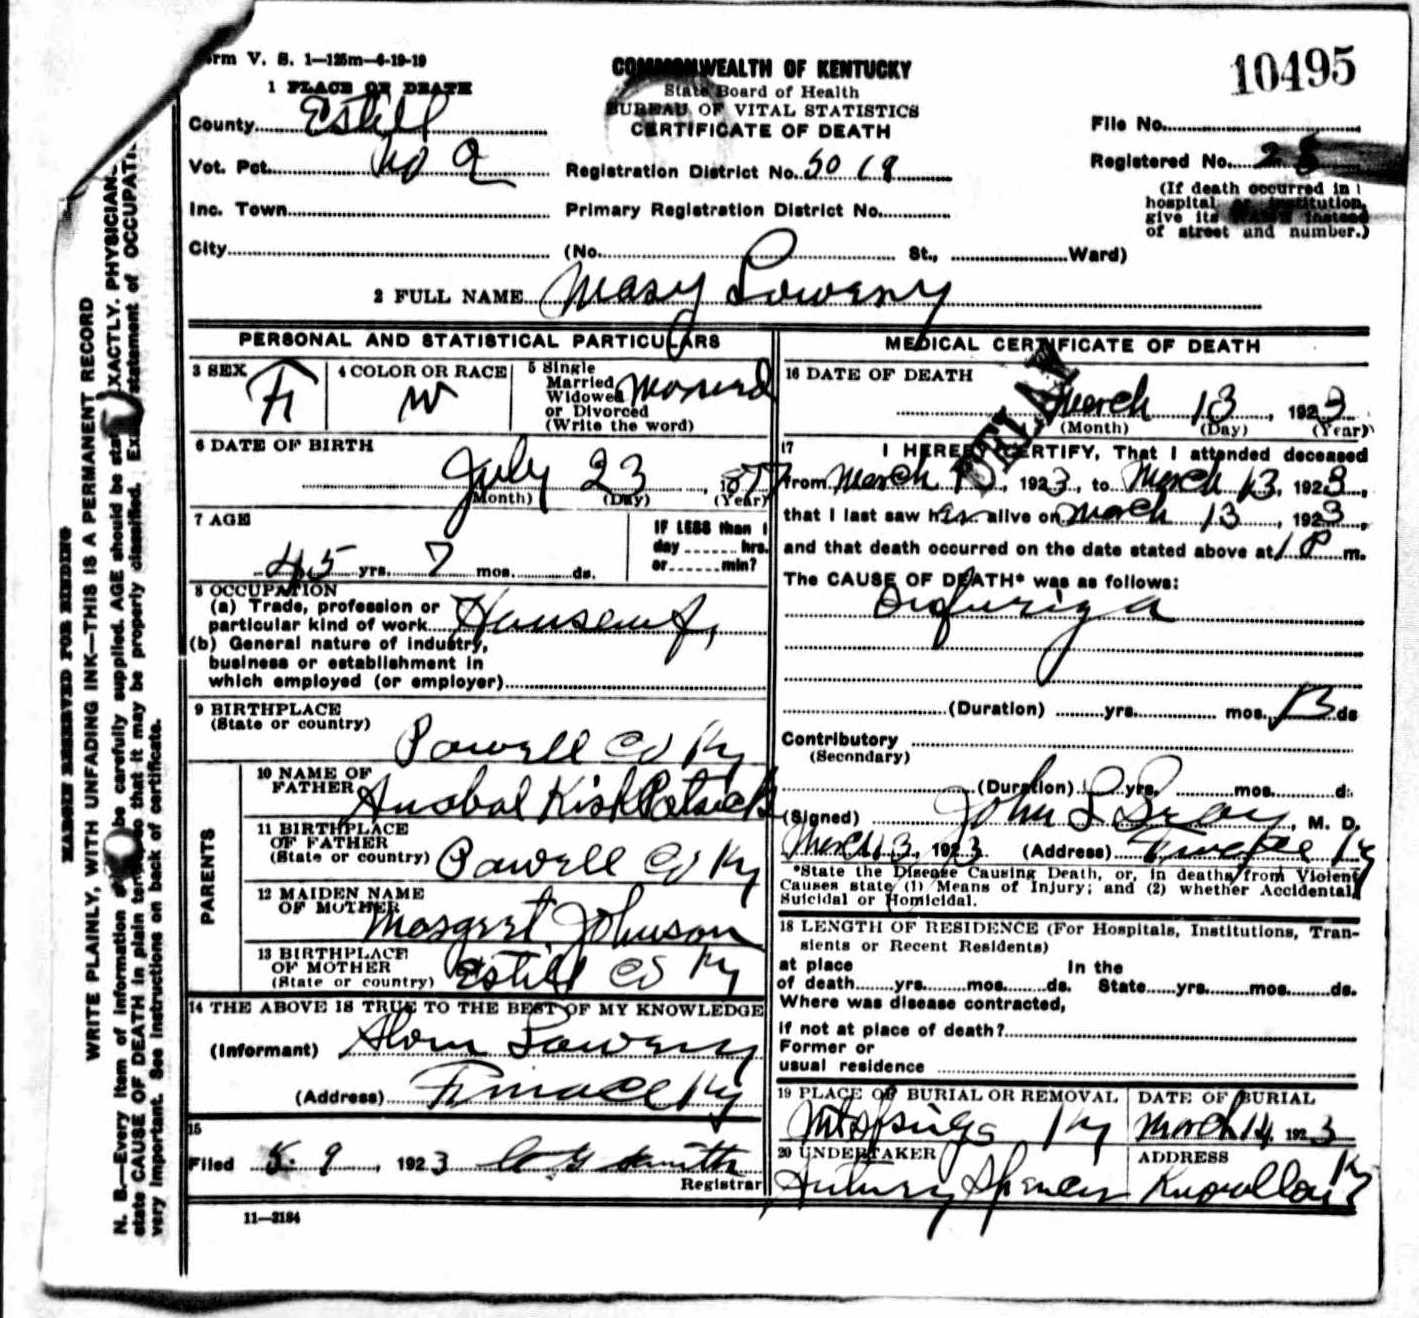 Form V. S. 1—125m—6-19-19
10495
COMMONWEALTH OF KENTUCKY
State Board of Health
BUREAU OF VITAL STATISTICS
CERTIFICATE OF DEATH
1 PLACE OF DEATH
County Estill
Vot. Pct. No 2
Inc. Town
City
Registration District No. 5019
Primary Registration District No.
(No. St., Ward)
File No.
Registered No. 28
(If death occurred in
hospital or institution,
give its NAME instead
of street and number.)
2 FULL NAME Mary Lowery
PERSONAL AND STATISTICAL PARTICULARS
3 SEX F
4 COLOR OR RACE W
5 Single
Married
Widowed
or Divorced
(Write the word)
Married
6 DATE OF BIRTH
July 23, 1877
(Month) (Day) (Year)
7 AGE
45 yrs. 7 mos. ds.
IF LESS than 1
day hrs.
or min?
8 OCCUPATION
(a) Trade, profession or
particular kind of work
(b) General nature of industry,
business or establishment in
which employed (or employer)
9 BIRTHPLACE
(State or country)
Powell Co Ky
PARENTS
10 NAME OF
FATHER
11 BIRTHPLACE
OF FATHER
(State or country)
Powell Co Ky
12 MAIDEN NAME
OF MOTHER
Margret Johnson
13 BIRTHPLACE
OF MOTHER
(State or country)
Estill Co Ky
14 THE ABOVE IS TRUE TO THE BEST OF MY KNOWLEDGE
(Informant) Lowery
(Address) Furnace Ky
15
Filed 5-9, 1923 Smith
Registrar
11—3184
MEDICAL CERTIFICATE OF DEATH
DELAY
16 DATE OF DEATH
March 13, 1923
(Month) (Day) (Year)
17 I HEREBY CERTIFY, That I attended deceased
from March 13, 1923, to March 13, 1923,
that I last saw her alive on March 13, 1923,
and that death occurred on the date stated above at 1 P m.
The CAUSE OF DEATH* was as follows:
(Duration) yrs. mos. ds
Contributory
(Secondary)
(Duration) yrs. mos. ds
(Signed) John L , M. D.
March 13, 1923 (Address) Furnace Ky
*State the Disease Causing Death, or, in deaths from Violent
Causes state (1) Means of Injury; and (2) whether Accidental,
Suicidal or Homicidal.
18 LENGTH OF RESIDENCE (For Hospitals, Institutions, Tran-
sients or Recent Residents)
at place
of death yrs. mos. ds.
In the
State yrs. mos. ds.
Where was disease contracted,
if not at place of death?
Former or
usual residence
19 PLACE OF BURIAL OR REMOVAL
Ky
DATE OF BURIAL
March 14, 1923
20 UNDERTAKER
Spencer
ADDRESS
Ky
MARGIN RESERVED FOR BINDING
WRITE PLAINLY, WITH UNFADING INK—THIS IS A PERMANENT RECORD
N. B.—Every item of information should be carefully supplied. AGE should be stated EXACTLY. PHYSICIANS
state CAUSE OF DEATH in plain terms, so that it may be properly classified. Exact statement of OCCUPATION
very important. See instructions on back of certificate.